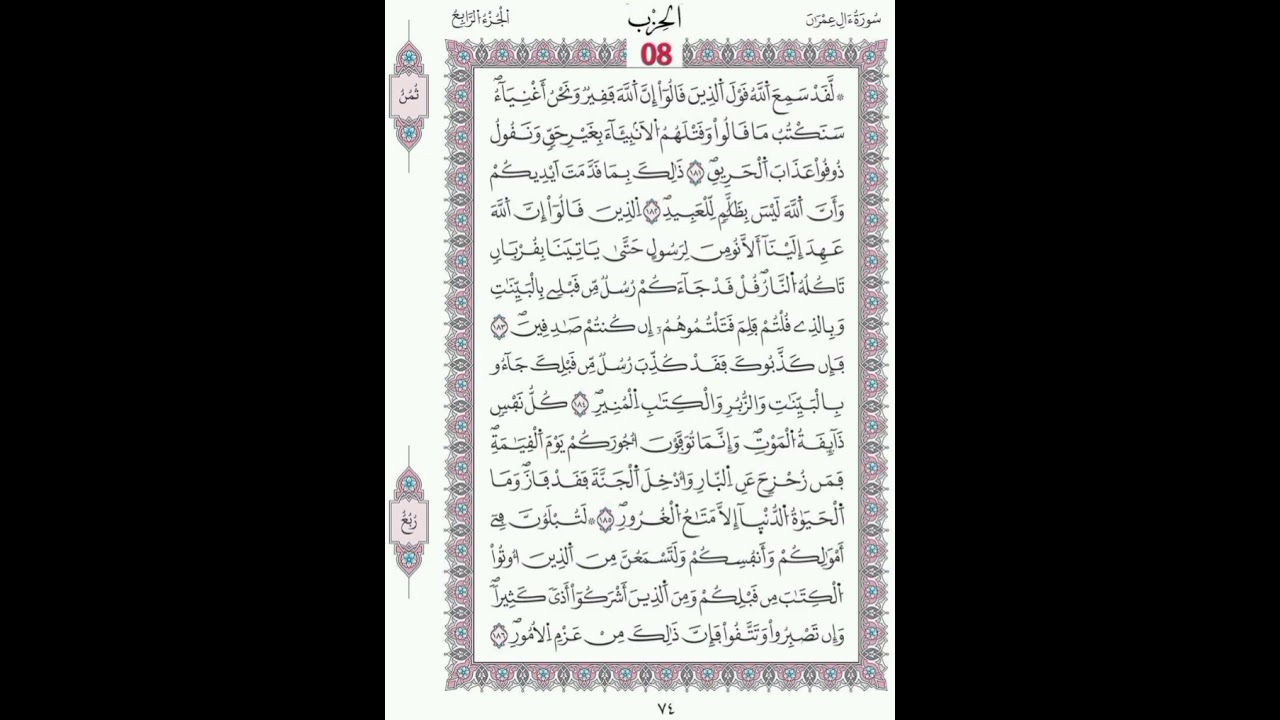 سُورَةُ ءَالِ عِمْرَٰنَ
اَلْجُزْءُ الرَّابِعُ
الحِزْب
08
ثُمُنُ
۞ لَّقَدْ سَمِعَ اَللَّهُ قَوْلَ اَلذِينَ قَالُوٓاْ إِنَّ اَللَّهَ فَقِيرٞ وَنَحْنُ أَغْنِيَآءُۖ
سَنَكْتُبُ مَا قَالُواْ وَقَتْلَهُمُ اُلَانۢبِئَآءَ بِغَيْرِ حَقّٖ وَنَقُولُ
ذُوقُواْ عَذَابَ اَلْحَرِيقِۖ ١٨١ ذَٰلِكَ بِمَا قَدَّمَتَ اَيْدِيكُمْ
وَأَنَّ اَللَّهَ لَيْسَ بِظَلَّٰمٖ لِّلْعَبِيدِۖ ١٨٢ اِلذِينَ قَالُوٓاْ إِنَّ اَللَّهَ
عَهِدَ إِلَيْنَآ أَلَّا نُومِنَ لِرَسُولٍ حَتَّىٰ يَاتِيَنَا بِقُرْبَانٖ
تَاكُلُهُ اُلنَّارُۖ قُلْ قَدْ جَآءَكُمْ رُسُلٞ مِّن قَبْلِے بِالْبَيِّنَٰتِ
وَبِالذِے قُلْتُمْ فَلِمَ قَتَلْتُمُوهُمُۥٓ إِن كُنتُمْ صَٰدِقِينَۖ ١٨٣
فَإِن كَذَّبُوكَ فَقَدْ كُذِّبَ رُسُلٞ مِّن قَبْلِكَ جَآءُو
بِالْبَيِّنَٰتِ وَالزُّبُرِ وَالْكِتَٰبِ اِلْمُنِيرِۖ ١٨٤ كُلُّ نَفْسٖ
ذَآئِقَةُ اُلْمَوْتِۖ وَإِنَّمَا تُوَفَّوْنَ أُجُورَكُمْ يَوْمَ اَلْقِيَٰمَةِۖ
فَمَن زُحْزِحَ عَنِ اِلنّ۪ارِ وَأُدْخِلَ اَلْجَنَّةَ فَقَدْ فَازَۖ وَمَا
اَلْحَيَوٰةُ اُلدُّنْي۪آ إِلَّا مَتَٰعُ اُلْغُرُورِۖ ١٨٥ ۞ لَتُبْلَوُنَّ فِےٓ
أَمْوَٰلِكُمْ وَأَنفُسِكُمْ وَلَتَسْمَعُنَّ مِنَ اَلذِينَ أُوتُواْ
اُلْكِتَٰبَ مِن قَبْلِكُمْ وَمِنَ اَلذِينَ أَشْرَكُوٓاْ أَذىٗ كَثِيراٗۖ
وَإِن تَصْبِرُواْ وَتَتَّقُواْ فَإِنَّ ذَٰلِكَ مِنْ عَزْمِ اِلُامُورِۖ ١٨٦
رُبُعُ
٧٤